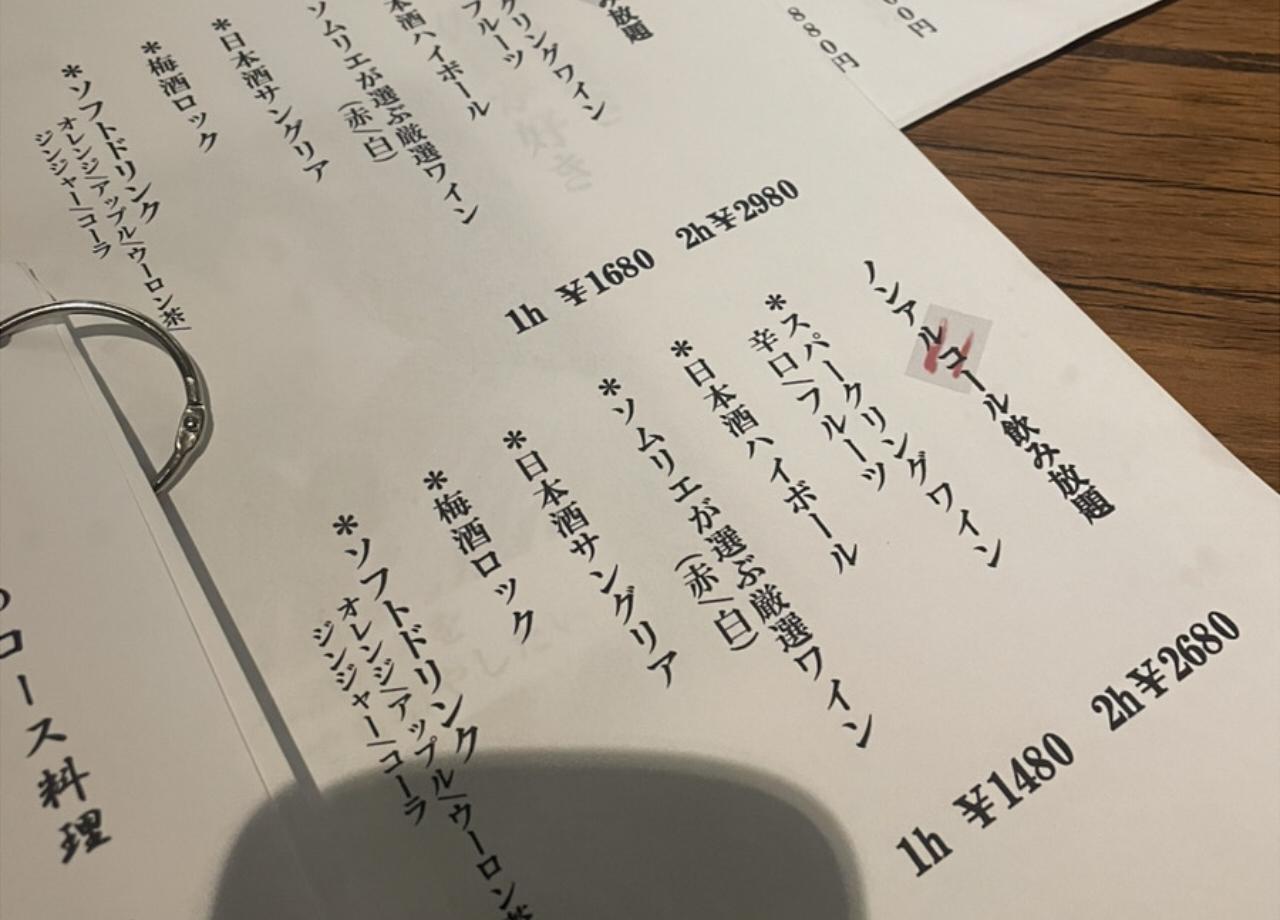 880円
0円
み放題
クリングワイン
フルーツ
本酒ハイボール
ソムリエが選ぶ厳選ワイン
(赤/白)
*日本酒サングリア
*梅酒ロック
*ソフトドリンク
オレンジ/アップル/ウーロン茶/
ジンジャー/コーラ
1h ¥1680 2h¥2980
ノンアルコール飲み放題
*スパークリングワイン
辛口/フルーツ
*日本酒ハイボール
*ソムリエが選ぶ厳選ワイン
(赤/白)
*日本酒サングリア
*梅酒ロック
*ソフトドリンク
オレンジ/アップル/ウーロン茶
ジンジャー/コーラ
1h ¥1480 2h¥2680
コース料理